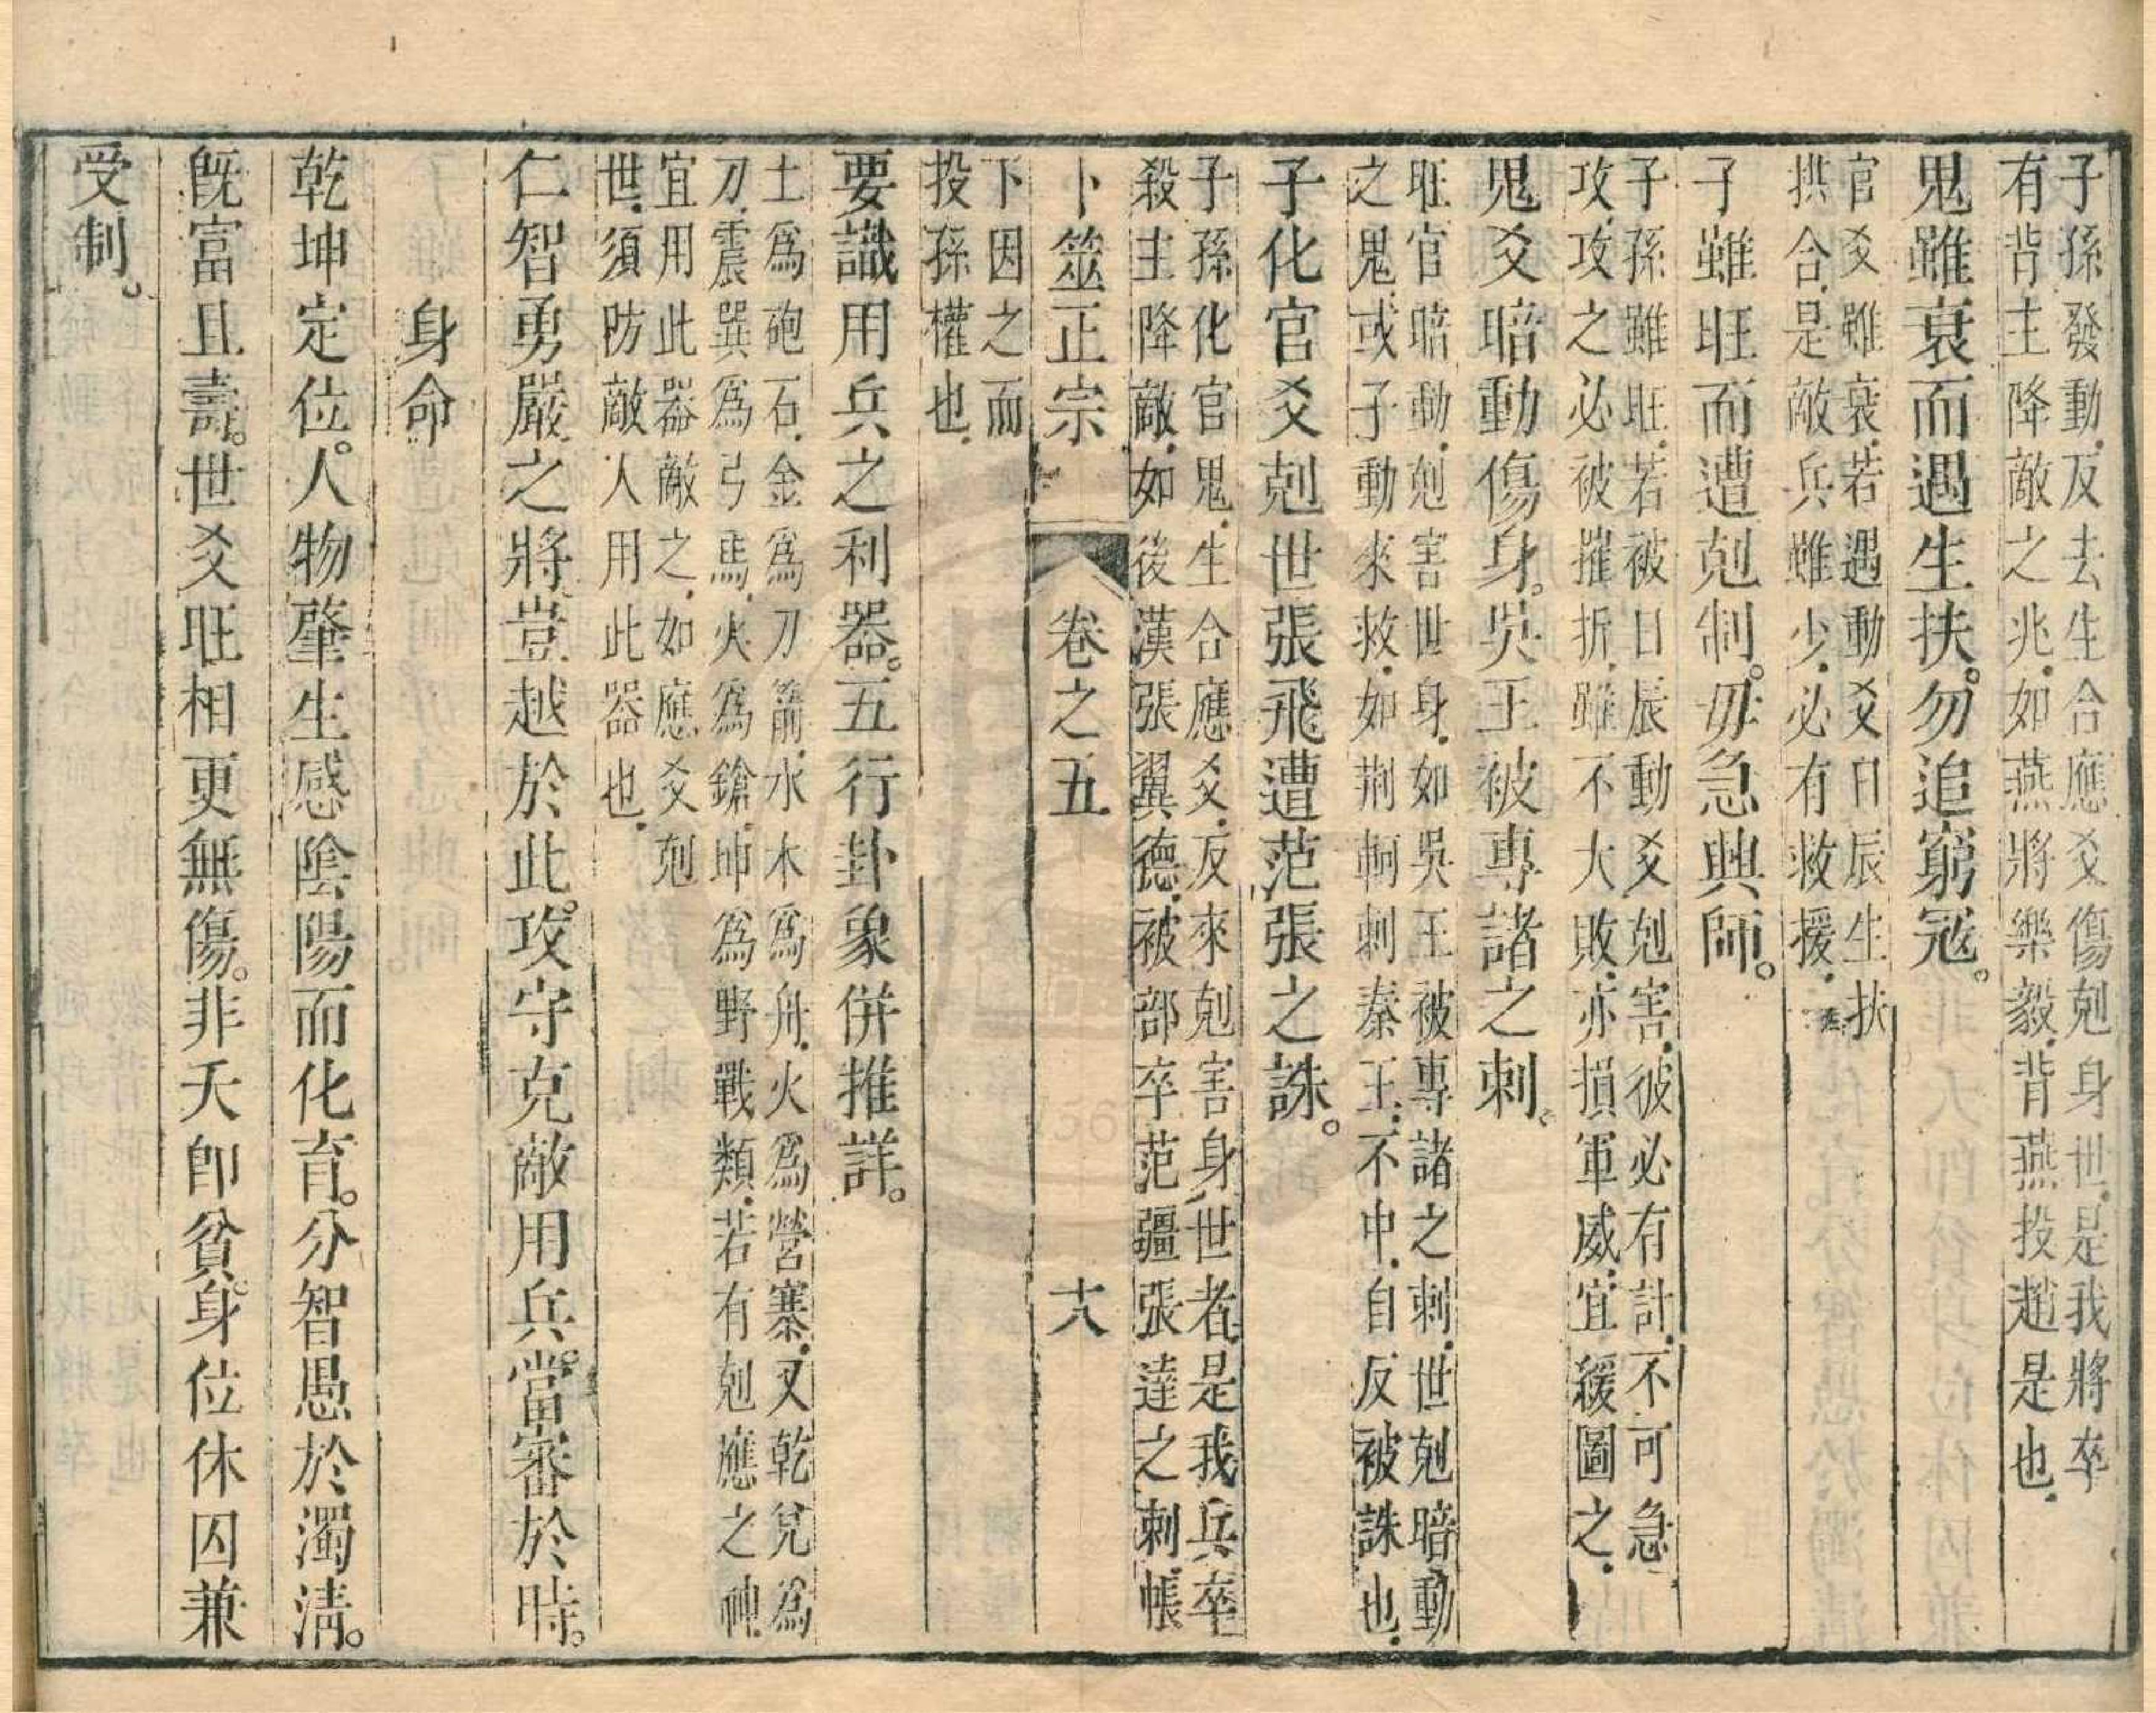 子孫發動.反去生合應爻傷剋身世.是我將卒
有背主降敵之兆.如燕將樂毅.背燕投趙是也.
鬼雖衰而遇生扶。勿追窮冦。
官爻雖衰.若遇動爻日辰生扶
拱合.是敵兵雖少.必有救援.
子雖旺而遭剋制。毋急興師。
子孫雖旺.若被日辰動爻剋害.彼必有計.不可急
攻.攻之必被摧折.雖不大敗.亦損軍威.宜緩圖之.
鬼爻暗動傷身。吳王被專諸之刺。
旺官暗動.剋害世身.如吳王被專諸之刺.世剋暗動
之鬼.或子動來救.如荆軻刺秦王.不中.自反被誅也.
子化官爻剋世張飛遭范張之誅。
子孫化官鬼.生合應爻.反來剋害身世者.是我兵卒
殺主降敵.如後漢張翼德.被部卒范疆張達之刺.帳
卜筮正宗 卷之五 十八
下因之而
投孫權也.
要識用兵之利器。五行卦象併推詳。
土爲砲石.金爲刀箭.水木爲舟.火爲營寨.又乾兌爲
刀.震巽爲弓馬.火爲鎗.坤爲野戰類.若有剋應之神.
宜用此器敵之.如應爻剋
世.須防敵人用此器也.
仁智勇嚴之將豈越於此。攻守克敵用兵。當審於時。
身命
乾坤定位。人物肇生感陰陽而化育。分智愚於濁清。
旣富且壽。世爻旺相更無傷。非夭卽貧。身位休囚兼
受制。